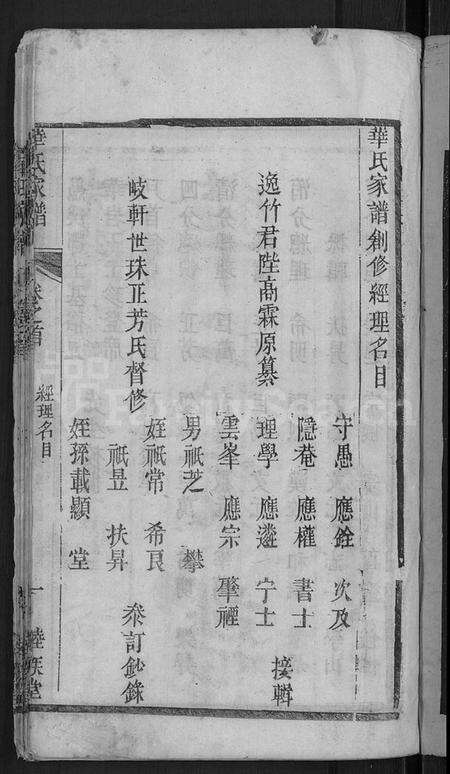 華氏家譜創修經理名目
逸竹君陛高霖原纂
守愚 應銓 次及
隱菴 應權 書士
理學 應遴 宁士
雲峯 應宗 肇禋
接輯
岐軒世珠正芳氏督修
男祇芝 攀
姪祇常 希良
祇昱 扶昇
姪孫載顯 堂
叅訂鈔錄
華氏家譜
卷之首
經理名目
一
睦族堂